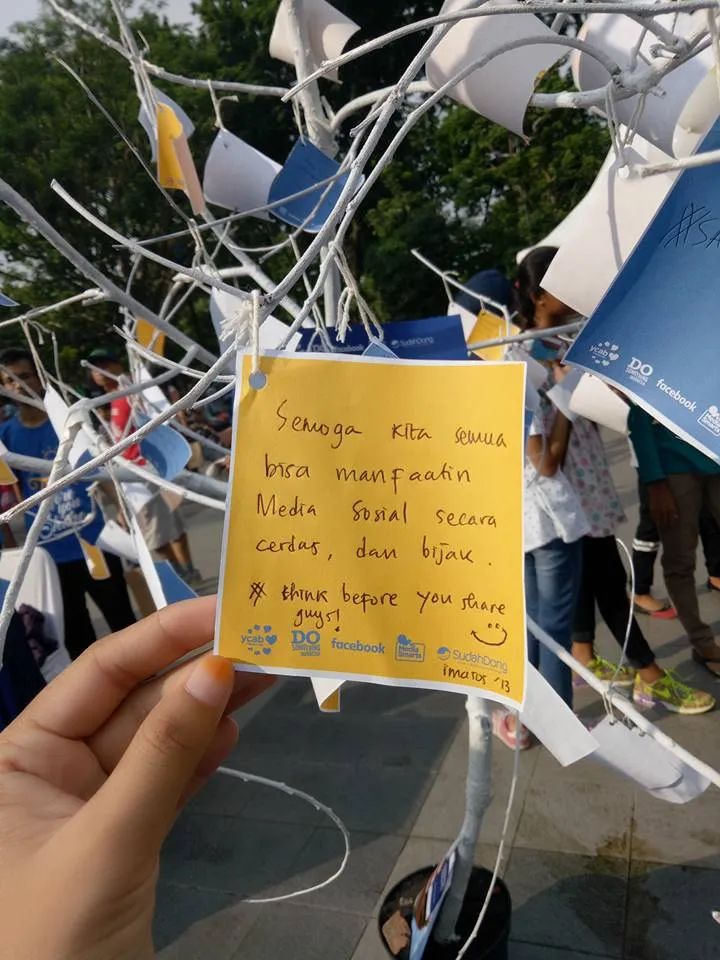 Semoga kita semua
bisa manfaatin
Media Sosial secara
cerdas, dan bijak.
# think before you share
guys!
ycab
DO
SOMETHING
facebook
Media
Smarts
SudahDong
imator '13
facebook
SudahDong
#SA
ycab
DO
SOMETHING
facebook
Media
Smarts